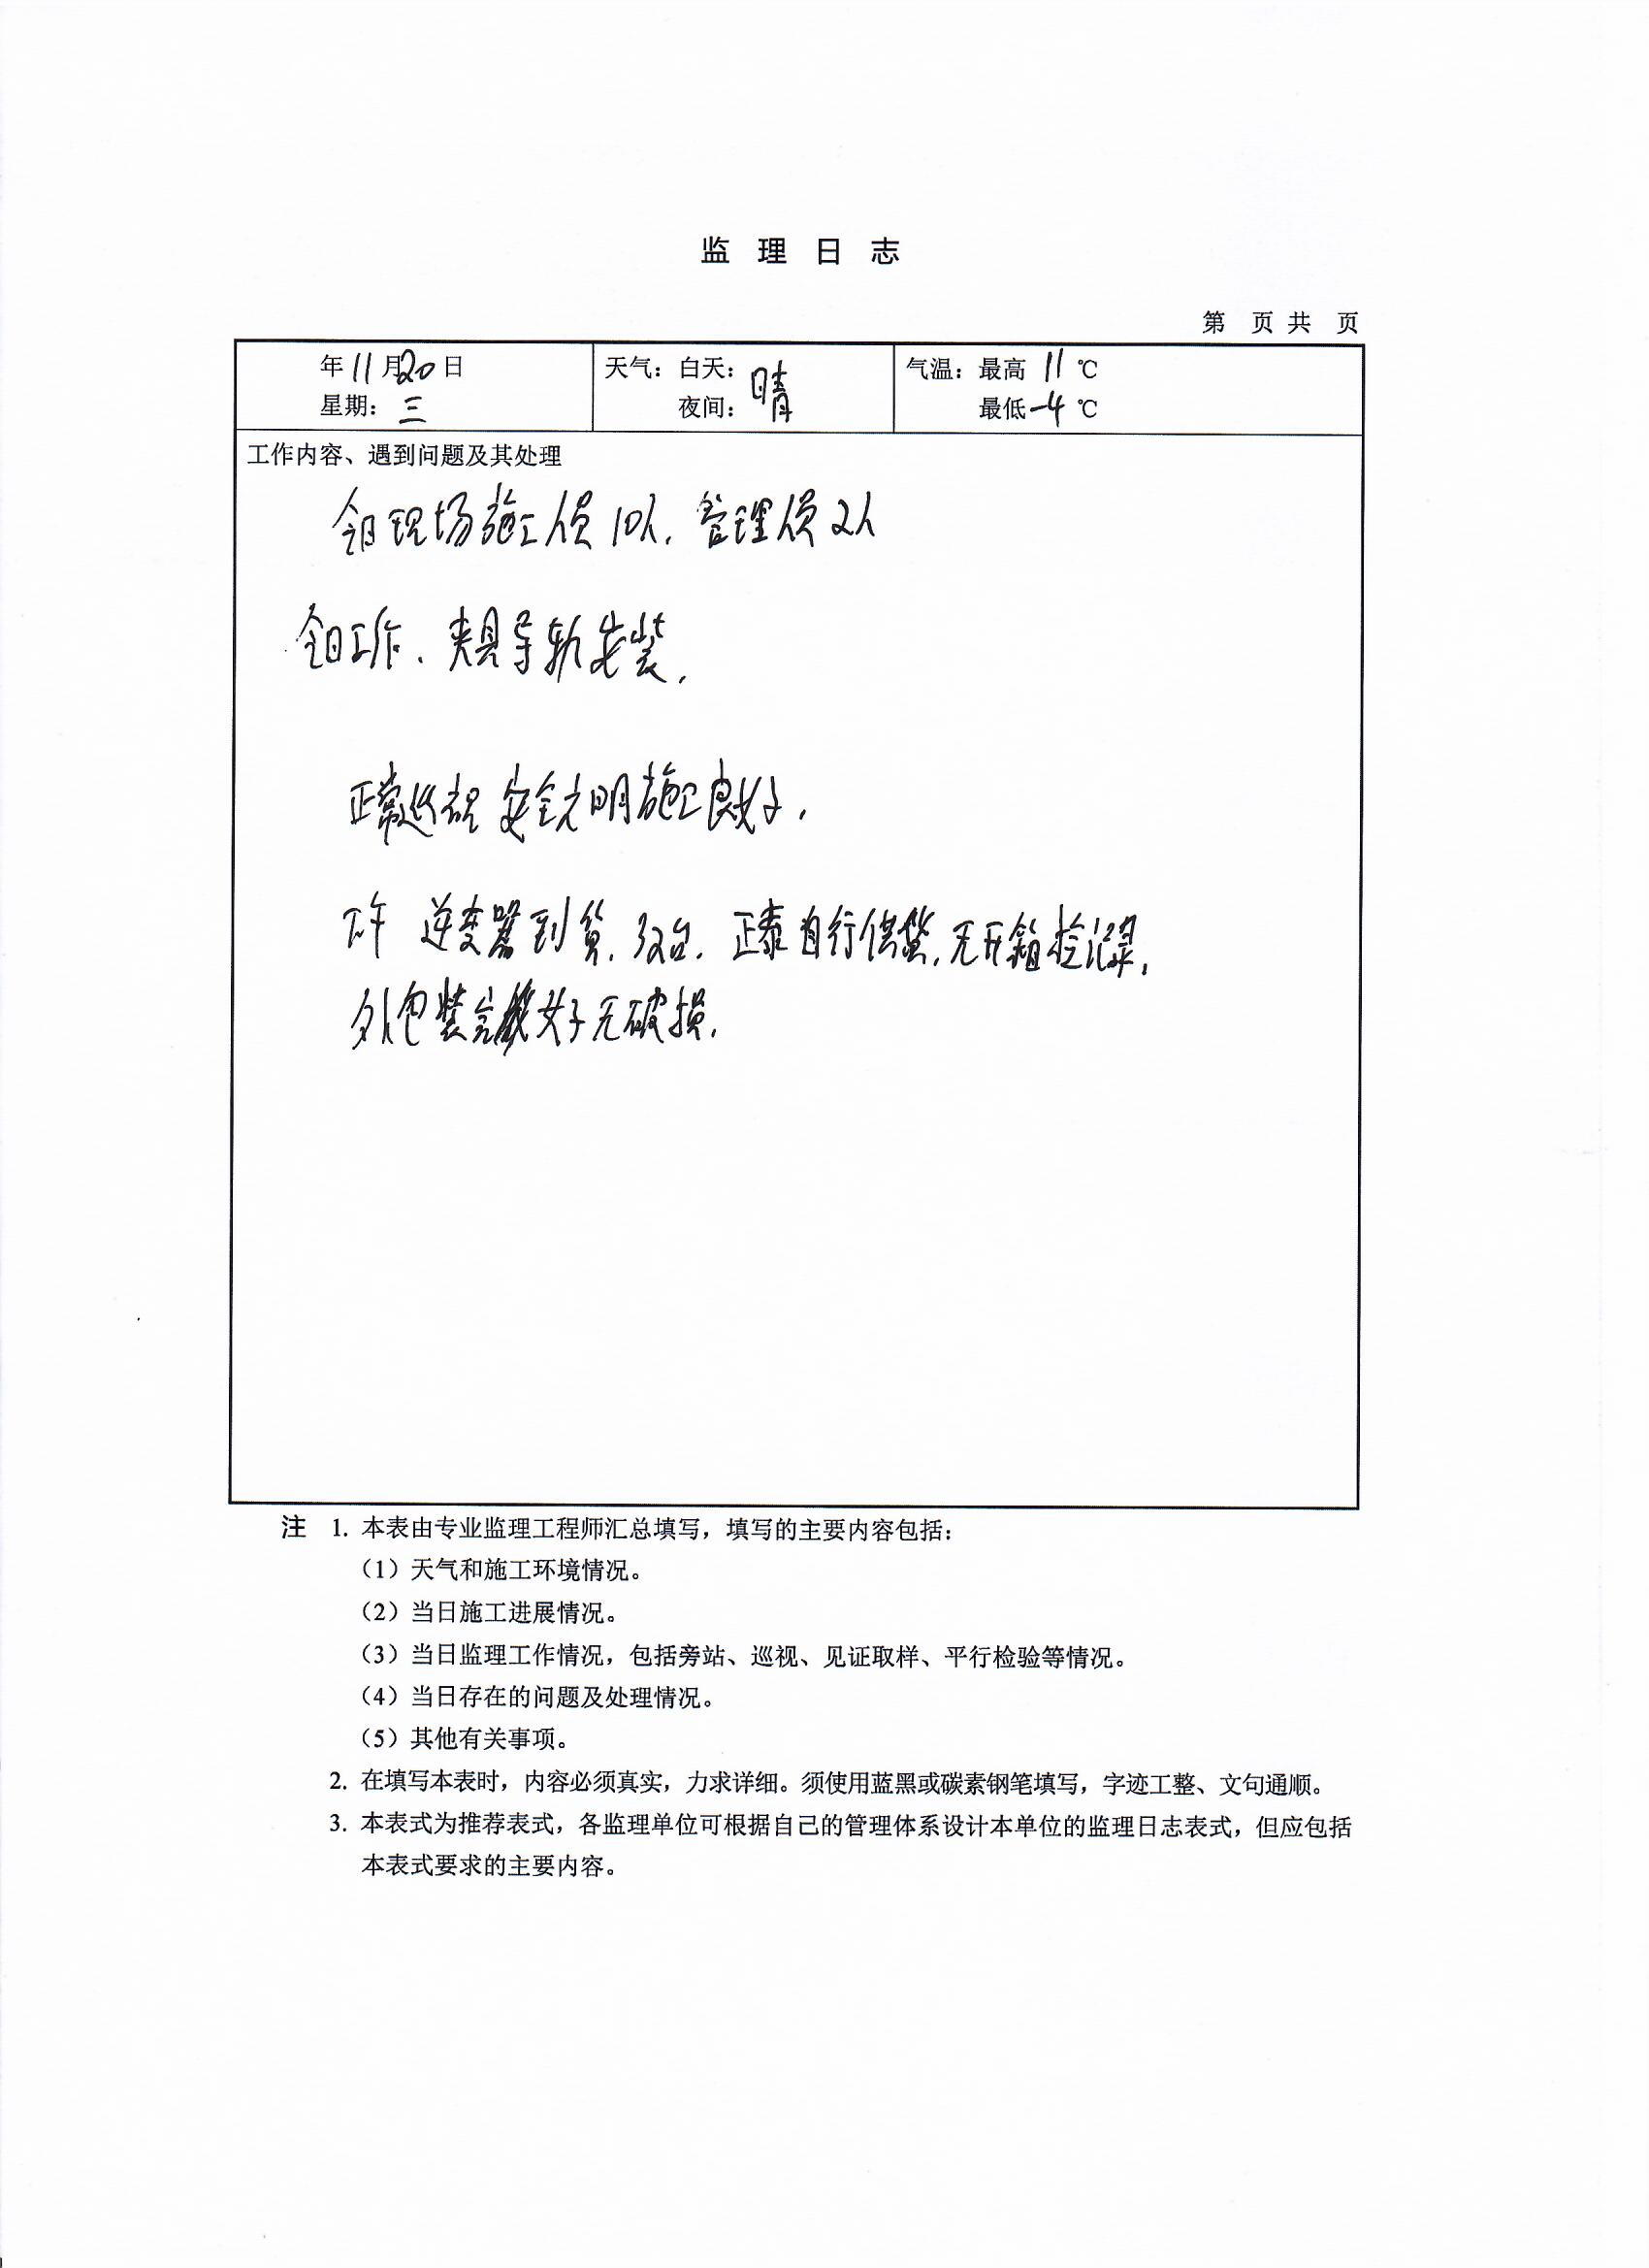 监理日志
第 页 共 页
年11月20日
星期：三
天气：白天：晴
夜间：
气温：最高 11 ℃
最低 -4 ℃
工作内容、遇到问题及其处理
今日现场施工人员10人，管理人员2人
今日工作、夹具导轨安装，
正常巡视 安全文明施工良好，
下午 逆变器到货，台，正泰自行供货，无开箱检记录，
外包装完好无破损，
注 1. 本表由专业监理工程师汇总填写，填写的主要内容包括：
（1）天气和施工环境情况。
（2）当日施工进展情况。
（3）当日监理工作情况，包括旁站、巡视、见证取样、平行检验等情况。
（4）当日存在的问题及处理情况。
（5）其他有关事项。
2. 在填写本表时，内容必须真实，力求详细。须使用蓝黑或碳素钢笔填写，字迹工整、文句通顺。
3. 本表式为推荐表式，各监理单位可根据自己的管理体系设计本单位的监理日志表式，但应包括
本表式要求的主要内容。